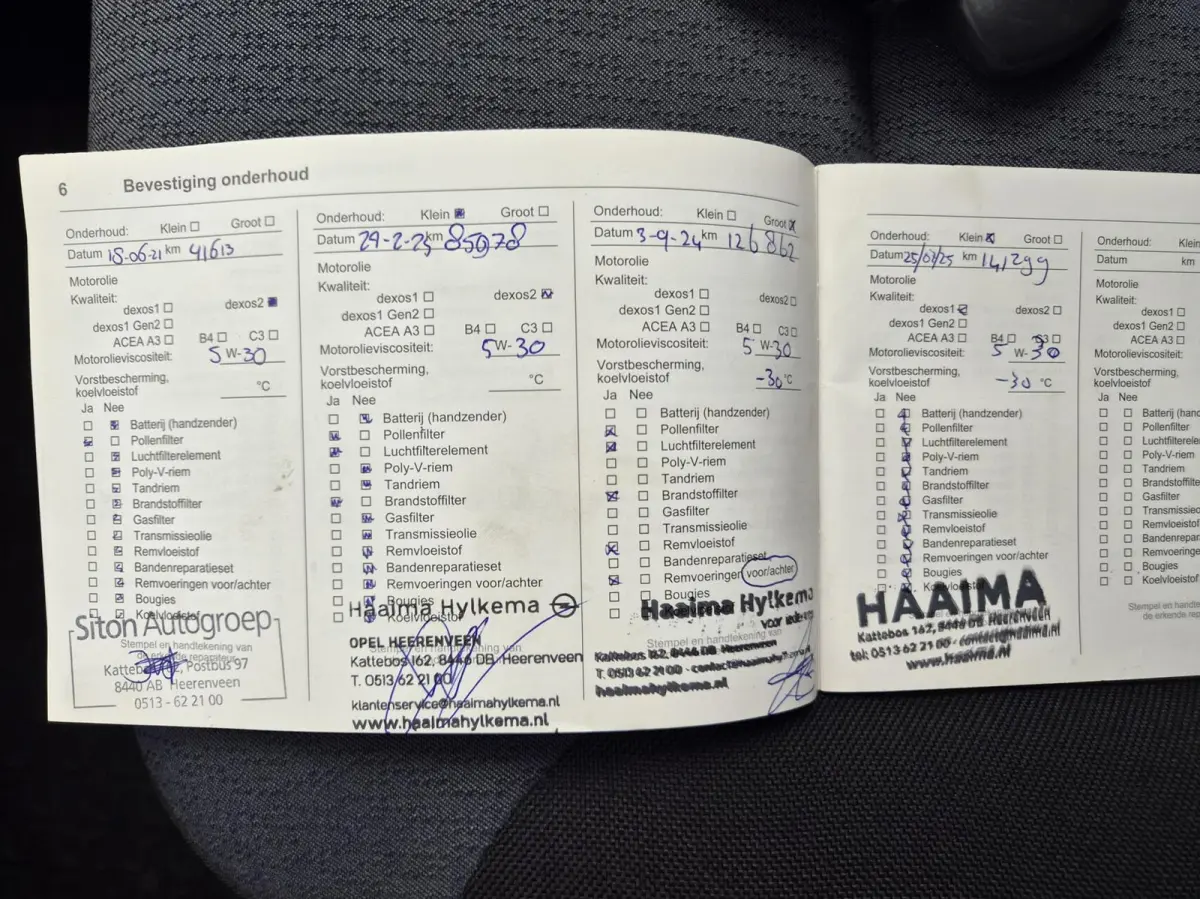 6 Bevestiging onderhoud
Onderhoud: Klein Groot
Datum 18-06-21 km 41613
Motorolie
Kwaliteit:
dexos1 dexos2
dexos1 Gen2
ACEA A3 B4 C3
Motorolieviscositeit: 5 W-30
Vorstbescherming,
koelvloeistof °C
Ja Nee
Batterij (handzender)
Pollenfilter
Luchtfilterelement
Poly-V-riem
Tandriem
Brandstoffilter
Gasfilter
Transmissieolie
Remvloeistof
Bandenreparatieset
Remvoeringen voor/achter
Bougies
Koelvloeistof
Siton Autogroep
Stempel en handtekening van
de erkende reparateur
Postbus 97
8440 AB Heerenveen
0513 - 62 21 00
Onderhoud: Klein Groot
Datum 29-2-23 km 85078
Motorolie
Kwaliteit:
dexos1 dexos2
dexos1 Gen2
ACEA A3 B4 C3
Motorolieviscositeit: 5W-30
Vorstbescherming,
koelvloeistof °C
Ja Nee
Batterij (handzender)
Pollenfilter
Luchtfilterelement
Poly-V-riem
Tandriem
Brandstoffilter
Gasfilter
Transmissieolie
Remvloeistof
Bandenreparatieset
Remvoeringen voor/achter
Bougies
Koelvloeistof
Haaima Hylkema
OPEL HEERENVEEN
Kattebos 162, 8446 DB Heerenveen
T. 0513 62 21 00
klantenservice@haaimahylkema.nl
www.haaimahylkema.nl
Onderhoud: Klein Groot
Datum 3-9-24 km 126862
Motorolie
Kwaliteit:
dexos1 dexos2
dexos1 Gen2
ACEA A3 B4 C3
Motorolieviscositeit: 5 W-30
Vorstbescherming,
koelvloeistof -30 °C
Ja Nee
Batterij (handzender)
Pollenfilter
Luchtfilterelement
Poly-V-riem
Tandriem
Brandstoffilter
Gasfilter
Transmissieolie
Remvloeistof
Bandenreparatieset
Remvoeringen voor/achter
Bougies
Haaima Hylkema
voor
Stempel en handtekening van
Kattebos 162, 8446 DB Heerenveen
T. 0513 62 21 00 -
haaimahylkema.nl
Onderhoud: Klein Groot
Datum 25/07/25 km 141299
Motorolie
Kwaliteit:
dexos1 dexos2
dexos1 Gen2
ACEA A3 B4 C3
Motorolieviscositeit: 5 W-30
Vorstbescherming,
koelvloeistof -30 °C
Ja Nee
Batterij (handzender)
Pollenfilter
Luchtfilterelement
Poly-V-riem
Tandriem
Brandstoffilter
Gasfilter
Transmissieolie
Remvloeistof
Bandenreparatieset
Remvoeringen voor/achter
Bougies
Koelvloeistof
HAAIMA
Kattebos 162, 8446 DB Heerenveen
tel: 0513 62 21 00 - contact@haaima.nl
www.haaima.nl
Onderhoud: Klein
Datum km
Motorolie
Kwaliteit:
dexos1
dexos1 Gen2
ACEA A3
Motorolieviscositeit:
Vorstbescherming,
koelvloeistof
Ja Nee
Batterij (handz
Pollenfilter
Luchtfilterele
Poly-V-riem
Tandriem
Brandstoffilter
Gasfilter
Transmissieo
Remvloeistof
Bandenrepar
Remvoeringen
Bougies
Koelvloeistof
Stempel en handte
de erkende repar